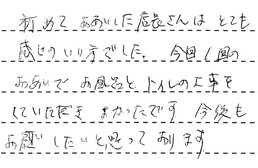 初めて お会いした店長さんは とても
感じの いい方でした。 今回1回の
お会いで お風呂と、トイレの工事を
していただき よかったです 今後も
お願いしたいと思って おります